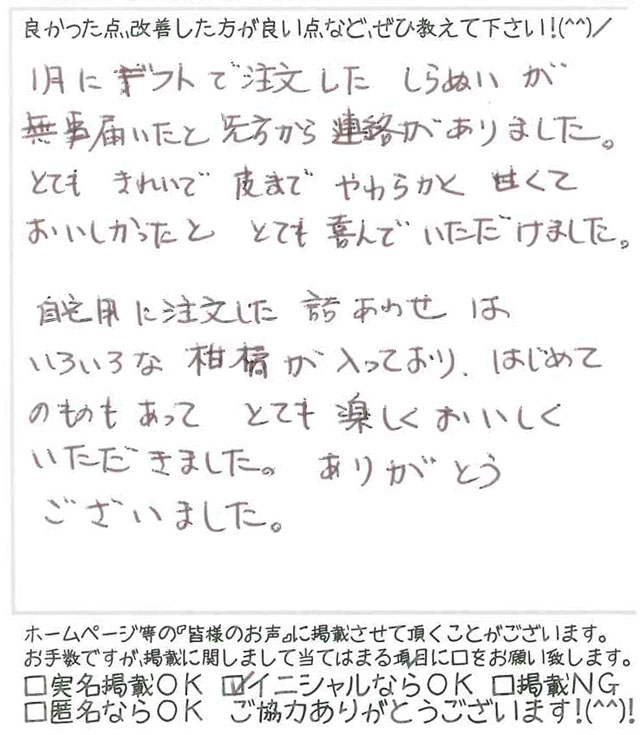 良かった点､改善した方が良い点など､ぜひ教えて下さい!(^^)/
1月に ギフトで注文した しらぬい が
無事届いたと 先方から 連絡がありました。
とても きれいで 皮まで やわらかく 甘くて
おいしかったと とても 喜んで いただけました。
自宅用に注文した 詰あわせ は
いろいろな 柑橘が 入っており、はじめて
のものも あって とても 楽しく おいしく
いただきました。 ありがとう
ございました。
ホームページ等の『皆様のお声』に掲載させて頂くことがございます。
お手数ですが､掲載に関しまして当てはまる項目に☑をお願い致します。
□実名掲載OK ☑イニシャルならOK □掲載NG
□匿名ならOK ご協力ありがとうございます!(^^)!